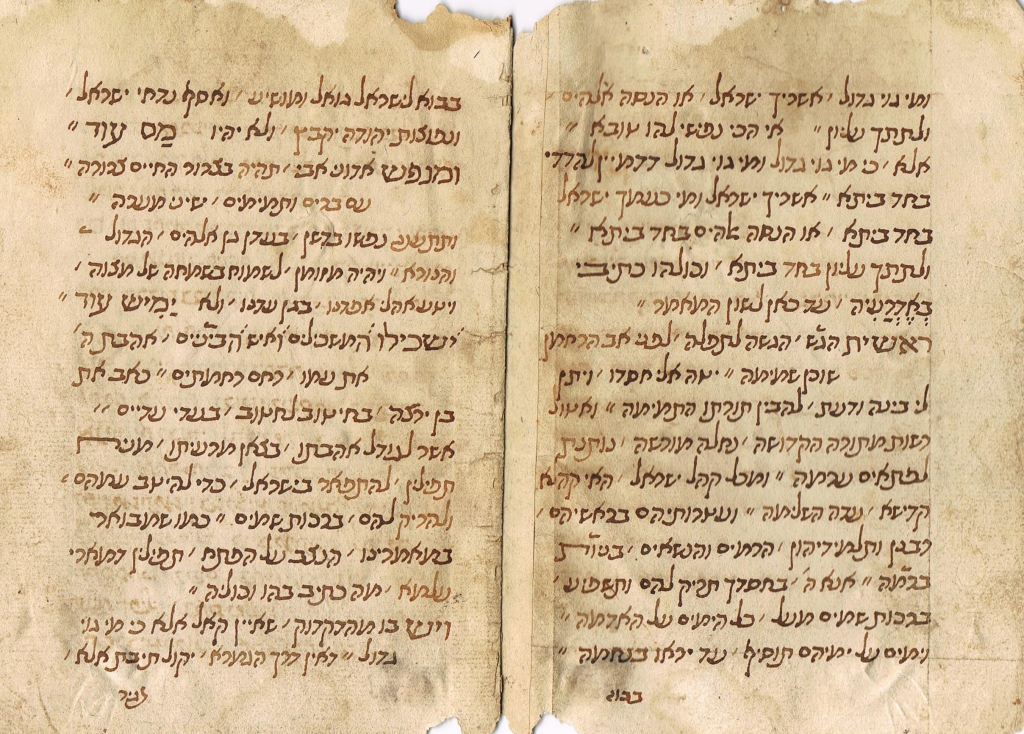 ומי גוי גדול / אשריך ישראל / או הנסה אלהים
ולתתך עליון " אי הכי נפישי להו טובא "
אלא / כי מי גוי גדול ומי גוי גדול דדמיין להדדי
בחד ביתא " אשריך ישראל ומי כעמך ישראל
בחד ביתא / או הנסה אלהים בחד ביתא "
ולתתך עליון בחד ביתא / וכולהו כתיבי
באדרעיה / עד כאן לשון המאמר "
ראשית הגש / הגשה לתפלה / לפני אב הרחמן
שוכן שמימה " יטה אלי חסדו / ויתן
לי בינה ודעת / להבין תורתו התמימה " ואטול
רשות מתורה הקדושה / נחלה מורשה / נותנת
לפתאים ערמה " ומכל קהל ישראל / האי קהלא
קדישא / עדה השלימה " ועטרותיהם בראשיהם /
רבנן ותלמידיהון / הרמים והנשאים /
ברמה " אנא ה' / בחסדך תריק להם ותשפיע /
ברכות שמים מעל / כל הימים על האדמה "
וימים על ימיהם תוסיף / עד יראו בנחמה "
בבוא
בבוא לישראל גואל ומושיע / ואסף נדחי ישראל /
ונפוצות יהודה יקבץ / ולא יהיו עוד "
ומנפש אדוני אבי / תהיה בצרור החיים צרורה "
עם ברים ותמימים / שית מערכה "
ותתענג נפשו בדשן / בעדן גן אלהים / הגדול
והנורא " ויהיה מזומן / לשמוח בשמחה של מצוה /
ויטע אהלי אפדנו / בגן עדנו / ולא ימיש עוד "
ישכילו המשכילים ואיש הביניים / אהבת ה'
את עמו / רחם רחמתים " כאב את
בן ירצה / בחי טוב לחשוב / בעדי עדיים "
אשר לגודל אהבתו / בצאן מרעיתו /
תפילין / להתפאר בישראל / כדי להיטיב עמהם
ולהריק להם / ברכות שמים " כמו שמבואר
במאמרינו / הנצב על הפתח / תפילין דמארי
עלמא / מה כתיב בהו וכוליה "
ויש בו מהדקדוק / שאיין קאל אלא כי מי גוי
גדול " דאין דרך הגמרא / יקול תיבת אלא /